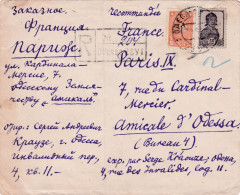 Заказное.
Recommandée
Франция
France.
Париж.
Paris IX.
ул. Кардинала-
Мерсье, 7.
7, rue du Cardinal-
Mercier.
Одесскому Земля-
честву "Амикаль".
Amicale d'Odessa
(Bureau 4)
отпр: Сергей Андреевич
Краузе, г. Одесса,
Инвалидный пер.
4, кв. 11.-
exp. par Serge Krause, Odessa,
4, rue des Invalides, log. 11.